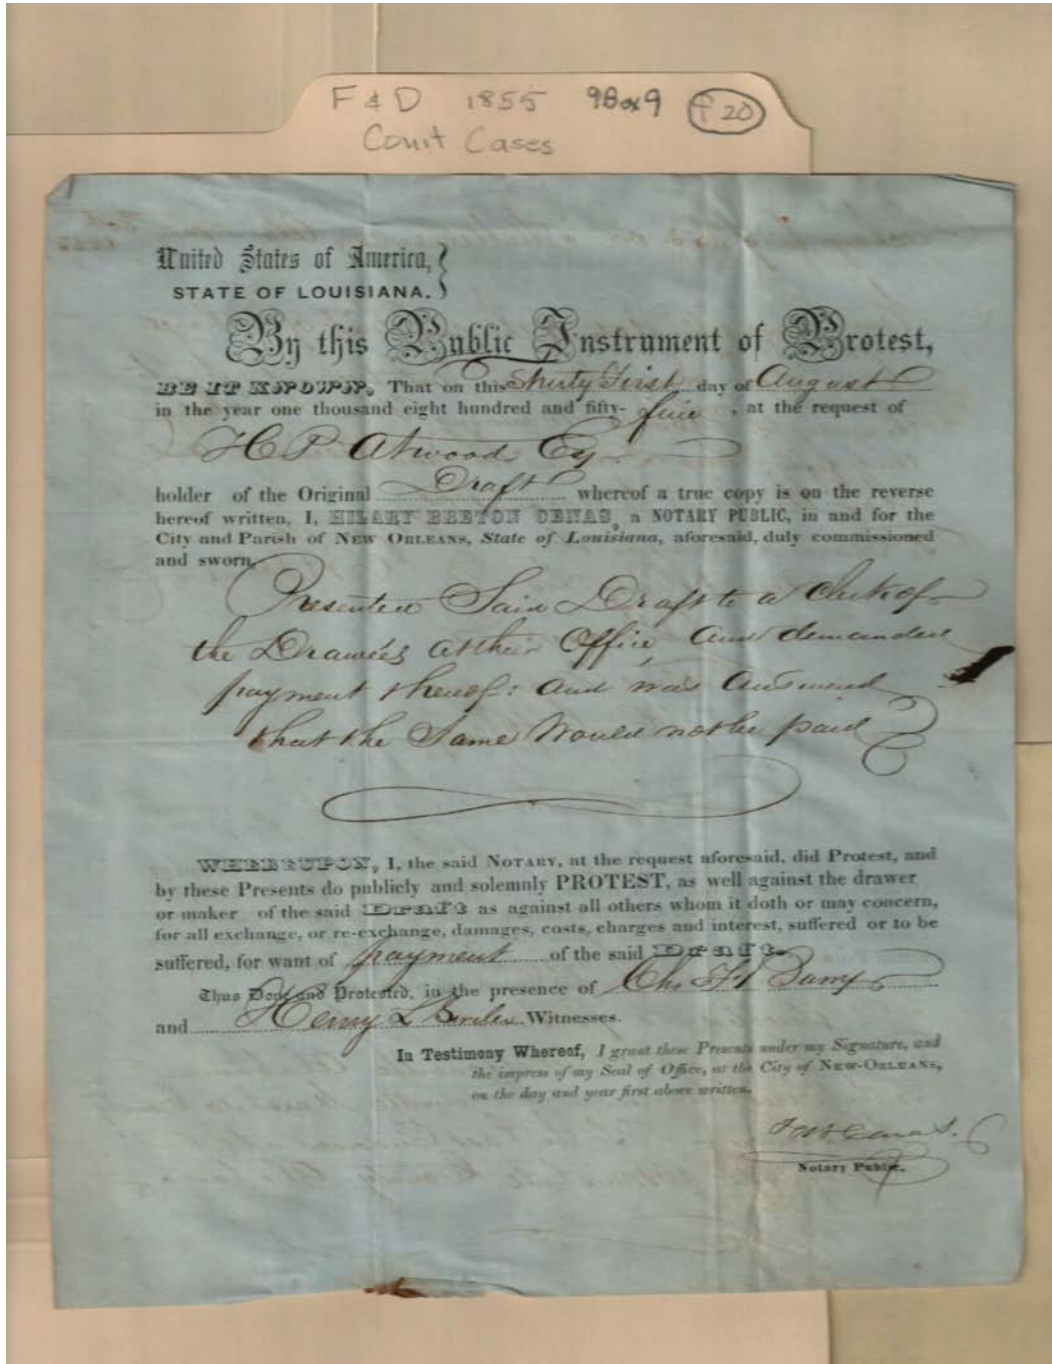 F & D 1855 98ox9 P 20
Court Cases
United States of America,
STATE OF LOUISIANA.
By this Public Instrument of Protest,
BE IT KNOWN, That on this Thirty First day of August
in the year one thousand eight hundred and fifty- five , at the request of
H P Atwood Esq
holder of the Original Draft whereof a true copy is on the reverse
hereof written, I, HILARY BRETON CENAS, a NOTARY PUBLIC, in and for the
City and Parish of NEW ORLEANS, State of Louisiana, aforesaid, duly commissioned
and sworn,
Presented Said Draft to a clerk of
the Drawees at their Office, and demanded
payment thereof: and was answered
that the Same Would not be paid
WHEREUPON, I, the said NOTARY, at the request aforesaid, did Protest, and
by these Presents do publicly and solemnly PROTEST, as well against the drawer
or maker of the said Draft as against all others whom it doth or may concern,
for all exchange, or re-exchange, damages, costs, charges and interest, suffered or to be
suffered, for want of payment of the said Draft
Thus Done and Protested, in the presence of Chs
and Henry L Witnesses.
In Testimony Whereof, I grant these Presents under my Signature, and
the impress of my Seal of Office, at the City of NEW-ORLEANS,
on the day and year first above written.
Cenas.
Notary Public.